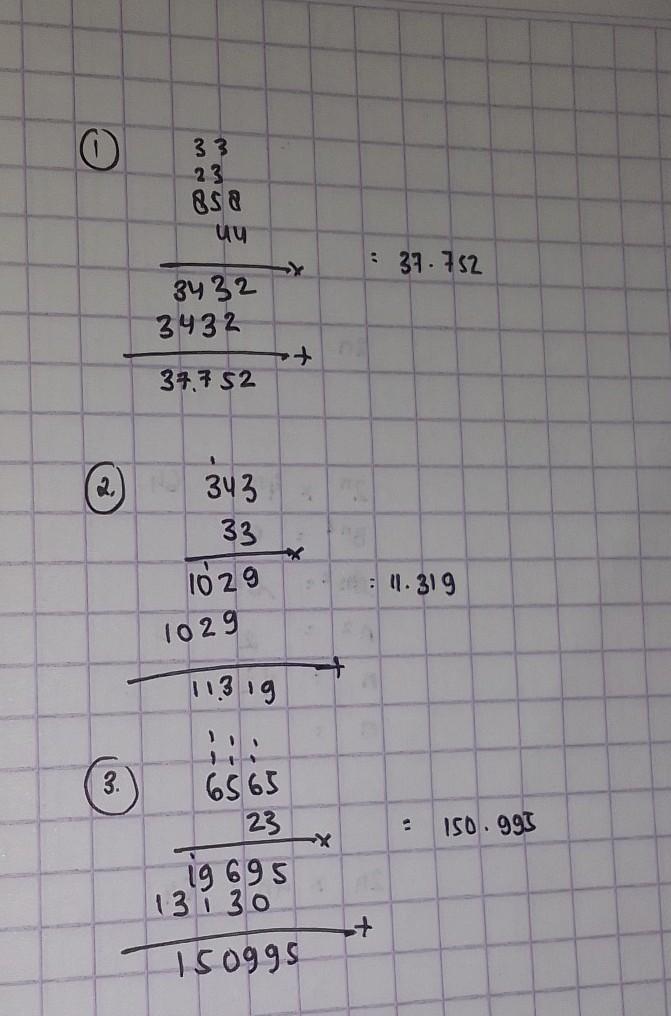 1
33
23
858
44
x
= 37.752
3432
3432
+
37.752
2.
343
33
x
1029
= 11.319
1029
+
11.319
3.
6565
23
x
= 150.995
19695
13130
+
150995